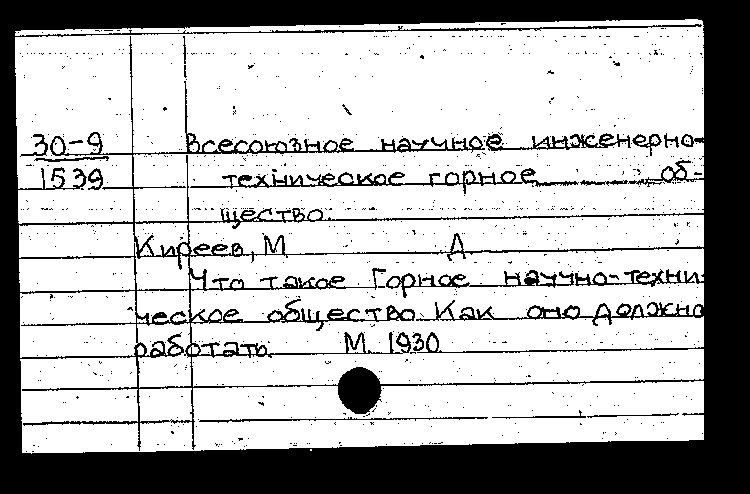 30-9 Всесоюзное научное инженерно-
1539 техническое горное об-
щество.
Киреев, М Д
Что такое Горное научно-техни-
ческое общество. Как оно должно
работать. М. 1930